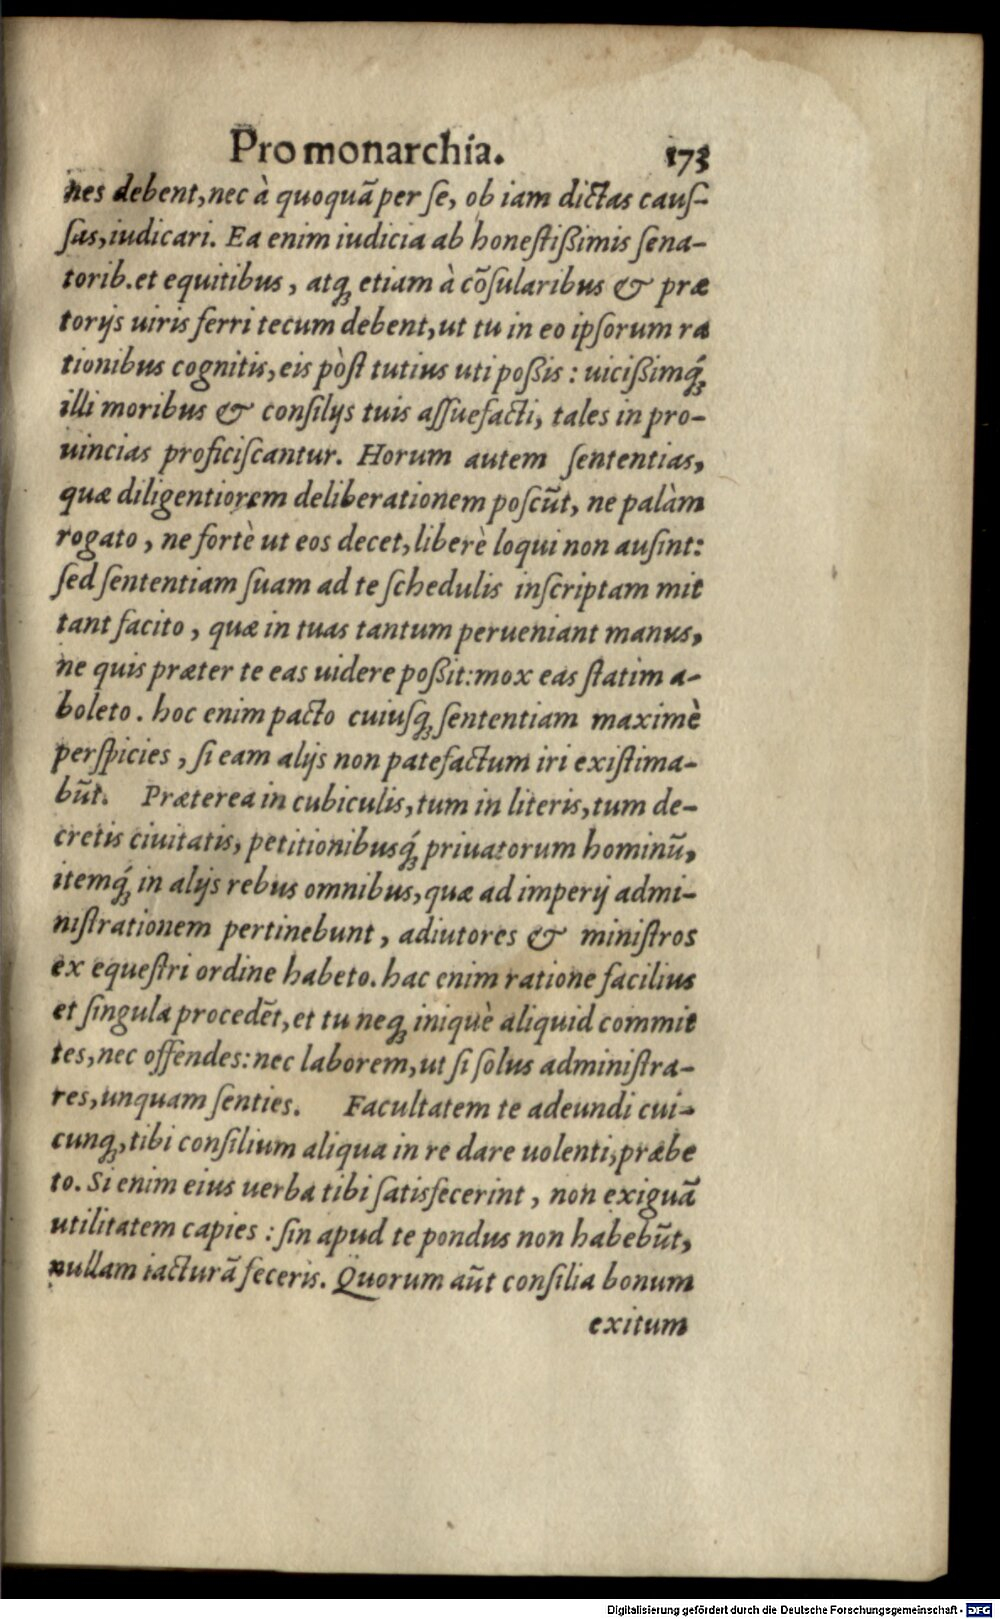 Pro monarchia. 173
nes debent, nec à quoquã per ſe, ob iam dictas cauſ-
ſas, iudicari. Ea enim iudicia ab honeſtißimis ſena-
torib. et equitibus, atq; etiam à cõſularibus & præ
torijs uiris ferri tecum debent, ut tu in eo ipſorum ra
tionibus cognitis, eis pòſt tutius uti poßis: uicißimq́;
illi moribus & conſilijs tuis aſſuefacti, tales in pro-
uincias proficiſcantur. Horum autem ſententias,
quæ diligentiorem deliberationem poſcũt, ne palàm
rogato, ne fortè ut eos decet, liberè loqui non auſint:
ſed ſententiam ſuam ad te ſchedulis inſcriptam mit
tant facito, quæ in tuas tantum perueniant manus,
ne quis præter te eas uidere poßit: mox eas ſtatim a-
boleto. hoc enim pacto cuiuſq; ſententiam maximè
perſpicies, ſi eam alijs non patefactum iri exiſtima-
bũt. Præterea in cubiculis, tum in literis, tum de-
cretis ciuitatis, petitionibusq́; priuatorum hominũ,
itemq́; in alijs rebus omnibus, quæ ad imperij admi-
niſtrationem pertinebunt, adiutores & miniſtros
ex equeſtri ordine habeto. hac enim ratione facilius
et ſingula procedẽt, et tu neq; iniquè aliquid commit
tes, nec offendes: nec laborem, ut ſi ſolus adminiſtra-
res, unquam ſenties. Facultatem te adeundi cui-
cunq;, tibi conſilium aliqua in re dare uolenti, præbe
to. Si enim eius uerba tibi ſatisfecerint, non exiguã
utilitatem capies: ſin apud te pondus non habebũt,
nullam iacturã feceris. Quorum aũt conſilia bonum
exitum
Digitalisierung gefördert durch die Deutsche Forschungsgemeinschaft - DFG